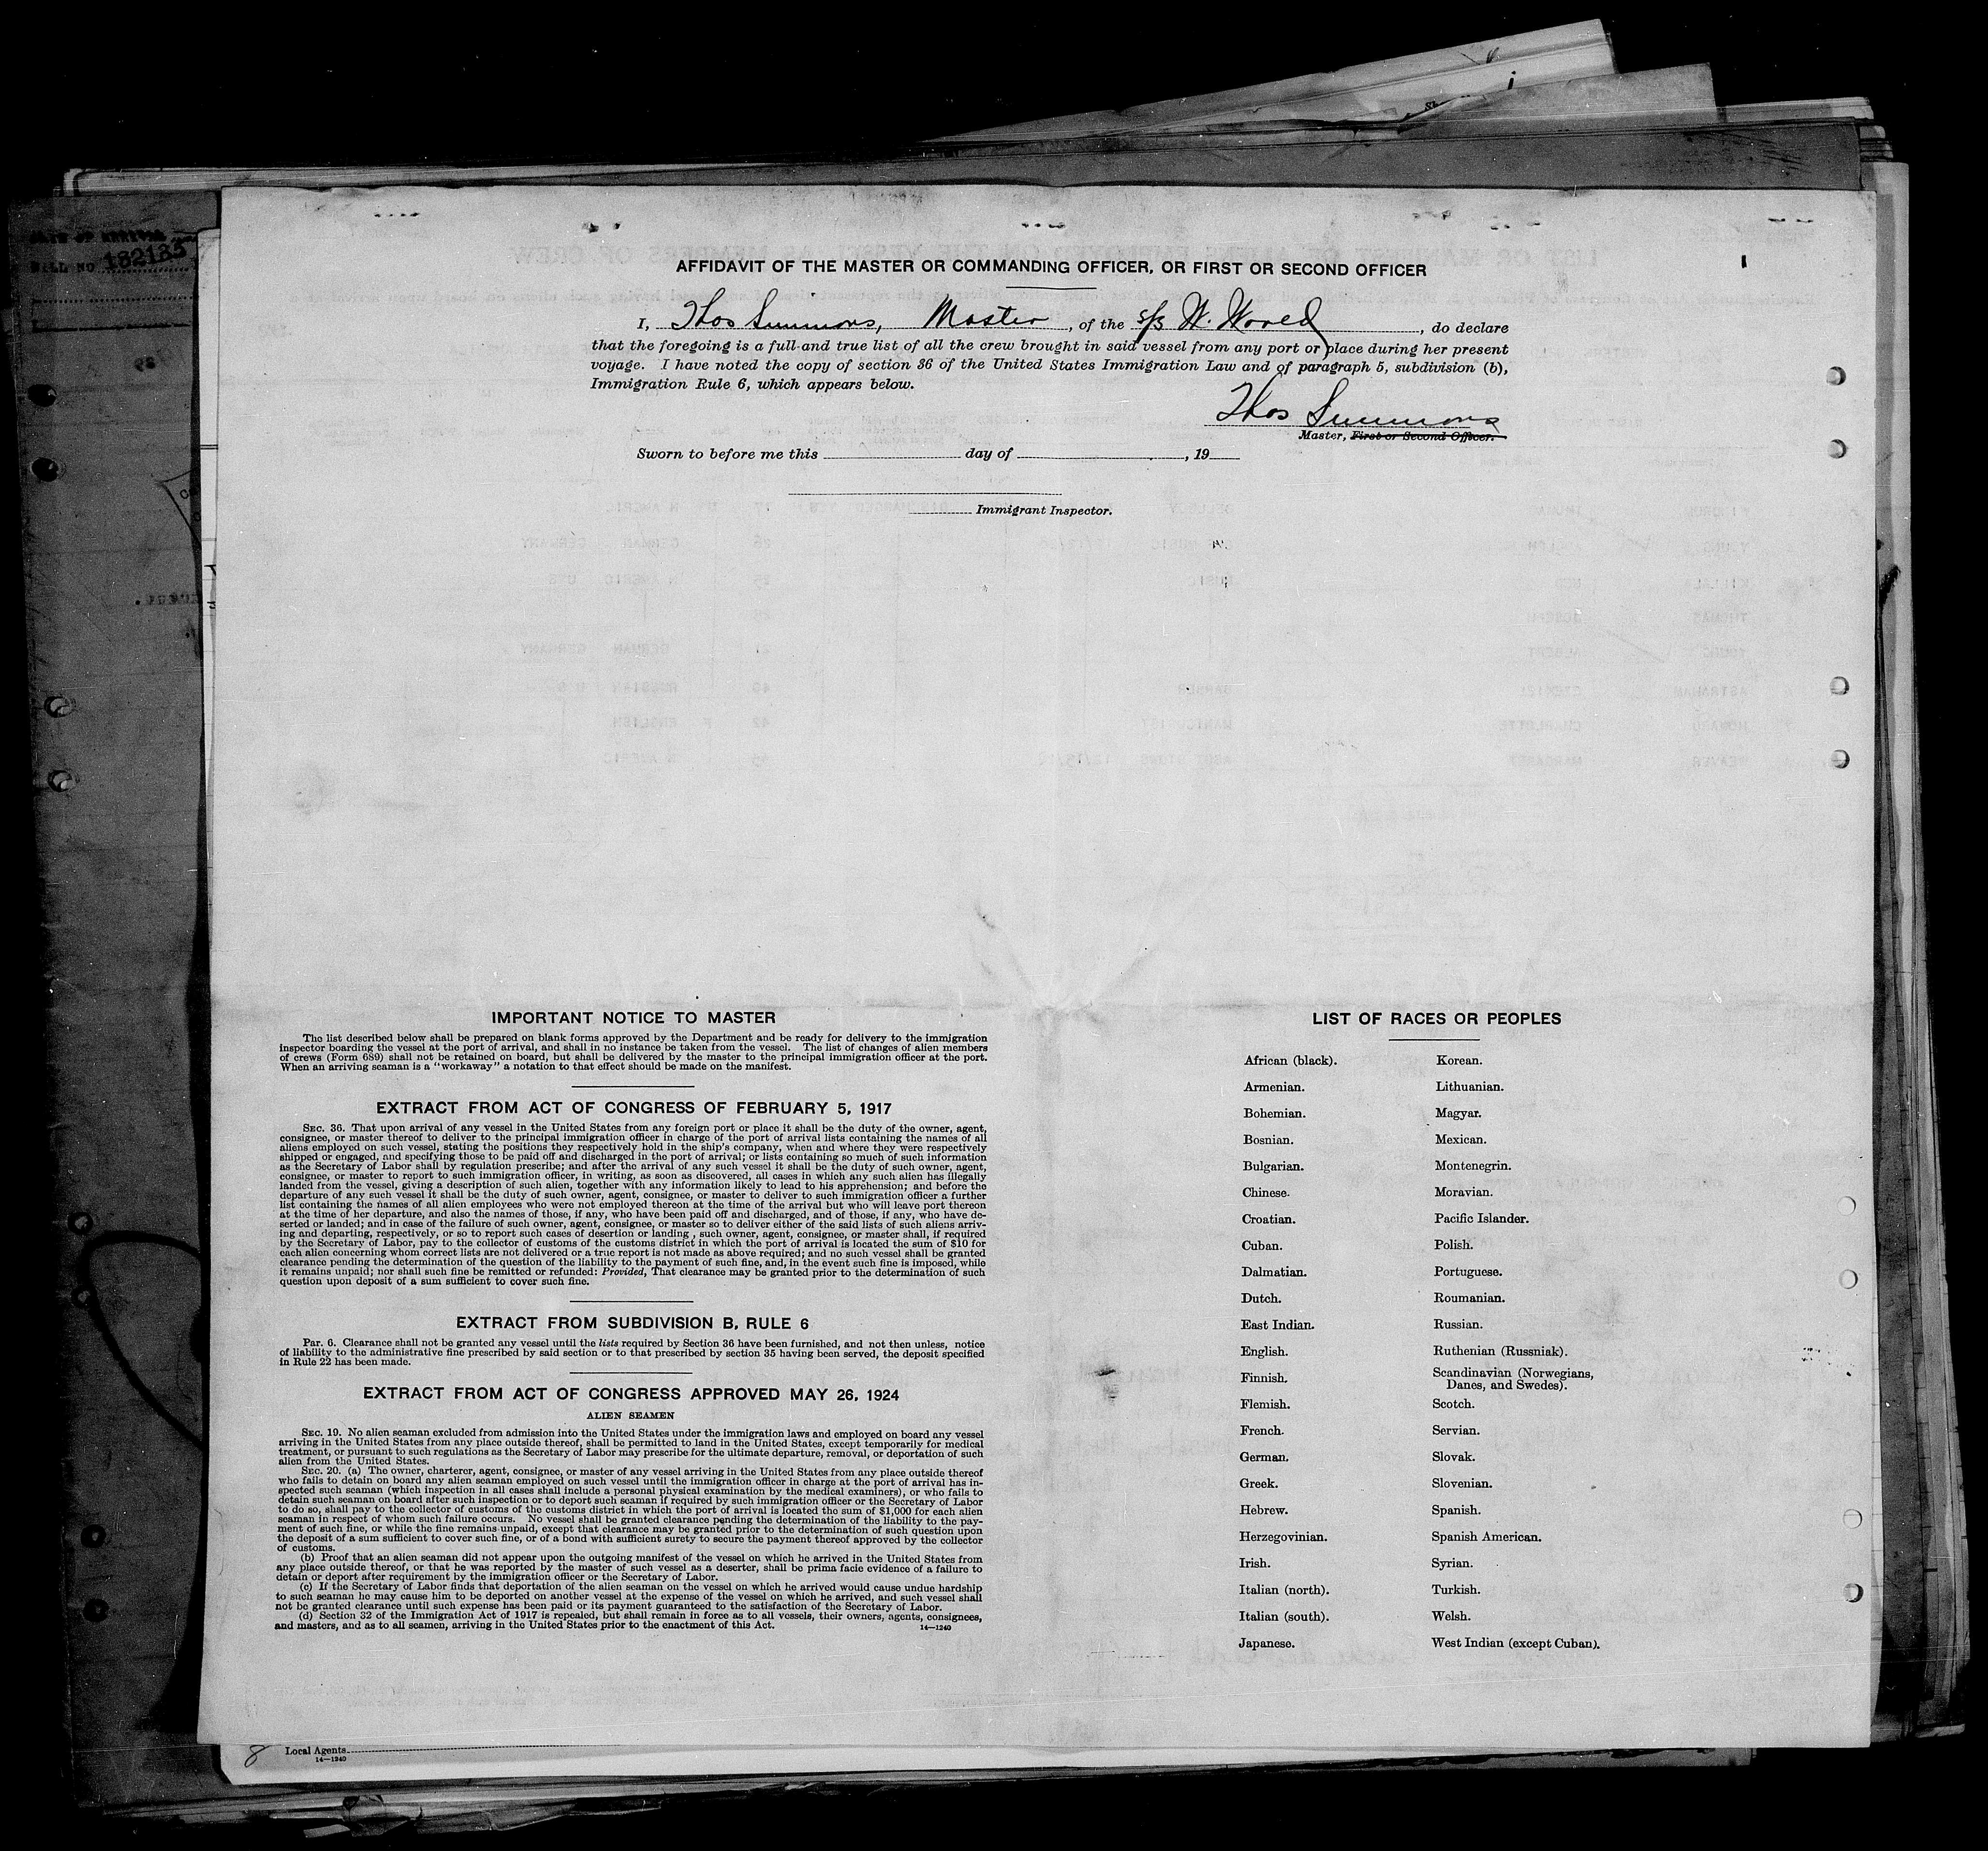 BILL NO. 182183
AFFIDAVIT OF THE MASTER OR COMMANDING OFFICER, OR FIRST OR SECOND OFFICER
I, Thos Simmons, Master, of the S/S W. World, do declare
that the foregoing is a full and true list of all the crew brought in said vessel from any port or place during her present
voyage. I have noted the copy of section 36 of the United States Immigration Law and of paragraph 5, subdivision (b),
Immigration Rule 6, which appears below.
Thos Simmons
Master, First or Second Officer.
Sworn to before me this day of , 19
Immigrant Inspector.
IMPORTANT NOTICE TO MASTER
The list described below shall be prepared on blank forms approved by the Department and be ready for delivery to the immigration
inspector boarding the vessel at the port of arrival, and shall in no instance be taken from the vessel. The list of changes of alien members
of crews (Form 689) shall not be retained on board, but shall be delivered by the master to the principal immigration officer at the port.
When an arriving seaman is a "workaway" a notation to that effect should be made on the manifest.
EXTRACT FROM ACT OF CONGRESS OF FEBRUARY 5, 1917
SEC. 36. That upon arrival of any vessel in the United States from any foreign port or place it shall be the duty of the owner, agent,
consignee, or master thereof to deliver to the principal immigration officer in charge of the port of arrival lists containing the names of all
aliens employed on such vessel, stating the positions they respectively hold in the ship's company, when and where they were respectively
shipped or engaged, and specifying those to be paid off and discharged in the port of arrival; or lists containing so much of such information
as the Secretary of Labor shall by regulation prescribe; and after the arrival of any such vessel it shall be the duty of such owner, agent,
consignee, or master to report to such immigration officer, in writing, as soon as discovered, all cases in which any such alien has illegally
landed from the vessel, giving a description of such alien, together with any information likely to lead to his apprehension; and before the
departure of any such vessel it shall be the duty of such owner, agent, consignee, or master to deliver to such immigration officer a further
list containing the names of all alien employees who were not employed thereon at the time of the arrival but who will leave port thereon
at the time of her departure, and also the names of those, if any, who have been paid off and discharged, and of those, if any, who have de-
serted or landed; and in case of the failure of such owner, agent, consignee, or master so to deliver either of the said lists of such aliens arriv-
ing and departing, respectively, or so to report such cases of desertion or landing , such owner, agent, consignee, or master shall, if required
by the Secretary of Labor, pay to the collector of customs of the customs district in which the port of arrival is located the sum of $10 for
each alien concerning whom correct lists are not delivered or a true report is not made as above required; and no such vessel shall be granted
clearance pending the determination of the question of the liability to the payment of such fine, and, in the event such fine is imposed, while
it remains unpaid; nor shall such fine be remitted or refunded: Provided, That clearance may be granted prior to the determination of such
question upon deposit of a sum sufficient to cover such fine.
EXTRACT FROM SUBDIVISION B, RULE 6
Par. 6. Clearance shall not be granted any vessel until the lists required by Section 36 have been furnished, and not then unless, notice
of liability to the administrative fine prescribed by said section or to that prescribed by section 35 having been served, the deposit specified
in Rule 22 has been made.
EXTRACT FROM ACT OF CONGRESS APPROVED MAY 26, 1924
ALIEN SEAMEN
SEC. 19. No alien seaman excluded from admission into the United States under the immigration laws and employed on board any vessel
arriving in the United States from any place outside thereof, shall be permitted to land in the United States, except temporarily for medical
treatment, or pursuant to such regulations as the Secretary of Labor may prescribe for the ultimate departure, removal, or deportation of such
alien from the United States.
SEC. 20. (a) The owner, charterer, agent, consignee, or master of any vessel arriving in the United States from any place outside thereof
who fails to detain on board any alien seaman employed on such vessel until the immigration officer in charge at the port of arrival has in-
spected such seaman (which inspection in all cases shall include a personal physical examination by the medical examiners), or who fails to
detain such seaman on board after such inspection or to deport such seaman if required by such immigration officer or the Secretary of Labor
to do so, shall pay to the collector of customs of the customs district in which the port of arrival is located the sum of $1,000 for each alien
seaman in respect of whom such failure occurs. No vessel shall be granted clearance pending the determination of the liability to the pay-
ment of such fine, or while the fine remains unpaid, except that clearance may be granted prior to the determination of such question upon
the deposit of a sum sufficient to cover such fine, or of a bond with sufficient surety to secure the payment thereof approved by the collector
of customs.
(b) Proof that an alien seaman did not appear upon the outgoing manifest of the vessel on which he arrived in the United States from
any place outside thereof, or that he was reported by the master of such vessel as a deserter, shall be prima facie evidence of a failure to
detain or deport after requirement by the immigration officer or the Secretary of Labor.
(c) If the Secretary of Labor finds that deportation of the alien seaman on the vessel on which he arrived would cause undue hardship
to such seaman he may cause him to be deported on another vessel at the expense of the vessel on which he arrived, and such vessel shall
not be granted clearance until such expense has been paid or its payment guaranteed to the satisfaction of the Secretary of Labor.
(d) Section 32 of the Immigration Act of 1917 is repealed, but shall remain in force as to all vessels, their owners, agents, consignees,
and masters, and as to all seamen, arriving in the United States prior to the enactment of this Act.
14—1240
LIST OF RACES OR PEOPLES
African (black).
Armenian.
Bohemian.
Bosnian.
Bulgarian.
Chinese.
Croatian.
Cuban.
Dalmatian.
Dutch.
East Indian.
English.
Finnish.
Flemish.
French.
German.
Greek.
Hebrew.
Herzegovinian.
Irish.
Italian (north).
Italian (south).
Japanese.
Korean.
Lithuanian.
Magyar.
Mexican.
Montenegrin.
Moravian.
Pacific Islander.
Polish.
Portuguese.
Roumanian.
Russian.
Ruthenian (Russniak).
Scandinavian (Norwegians,
Danes, and Swedes).
Scotch.
Servian.
Slovak.
Slovenian.
Spanish.
Spanish American.
Syrian.
Turkish.
Welsh.
West Indian (except Cuban).
8 Local Agents
14—1240